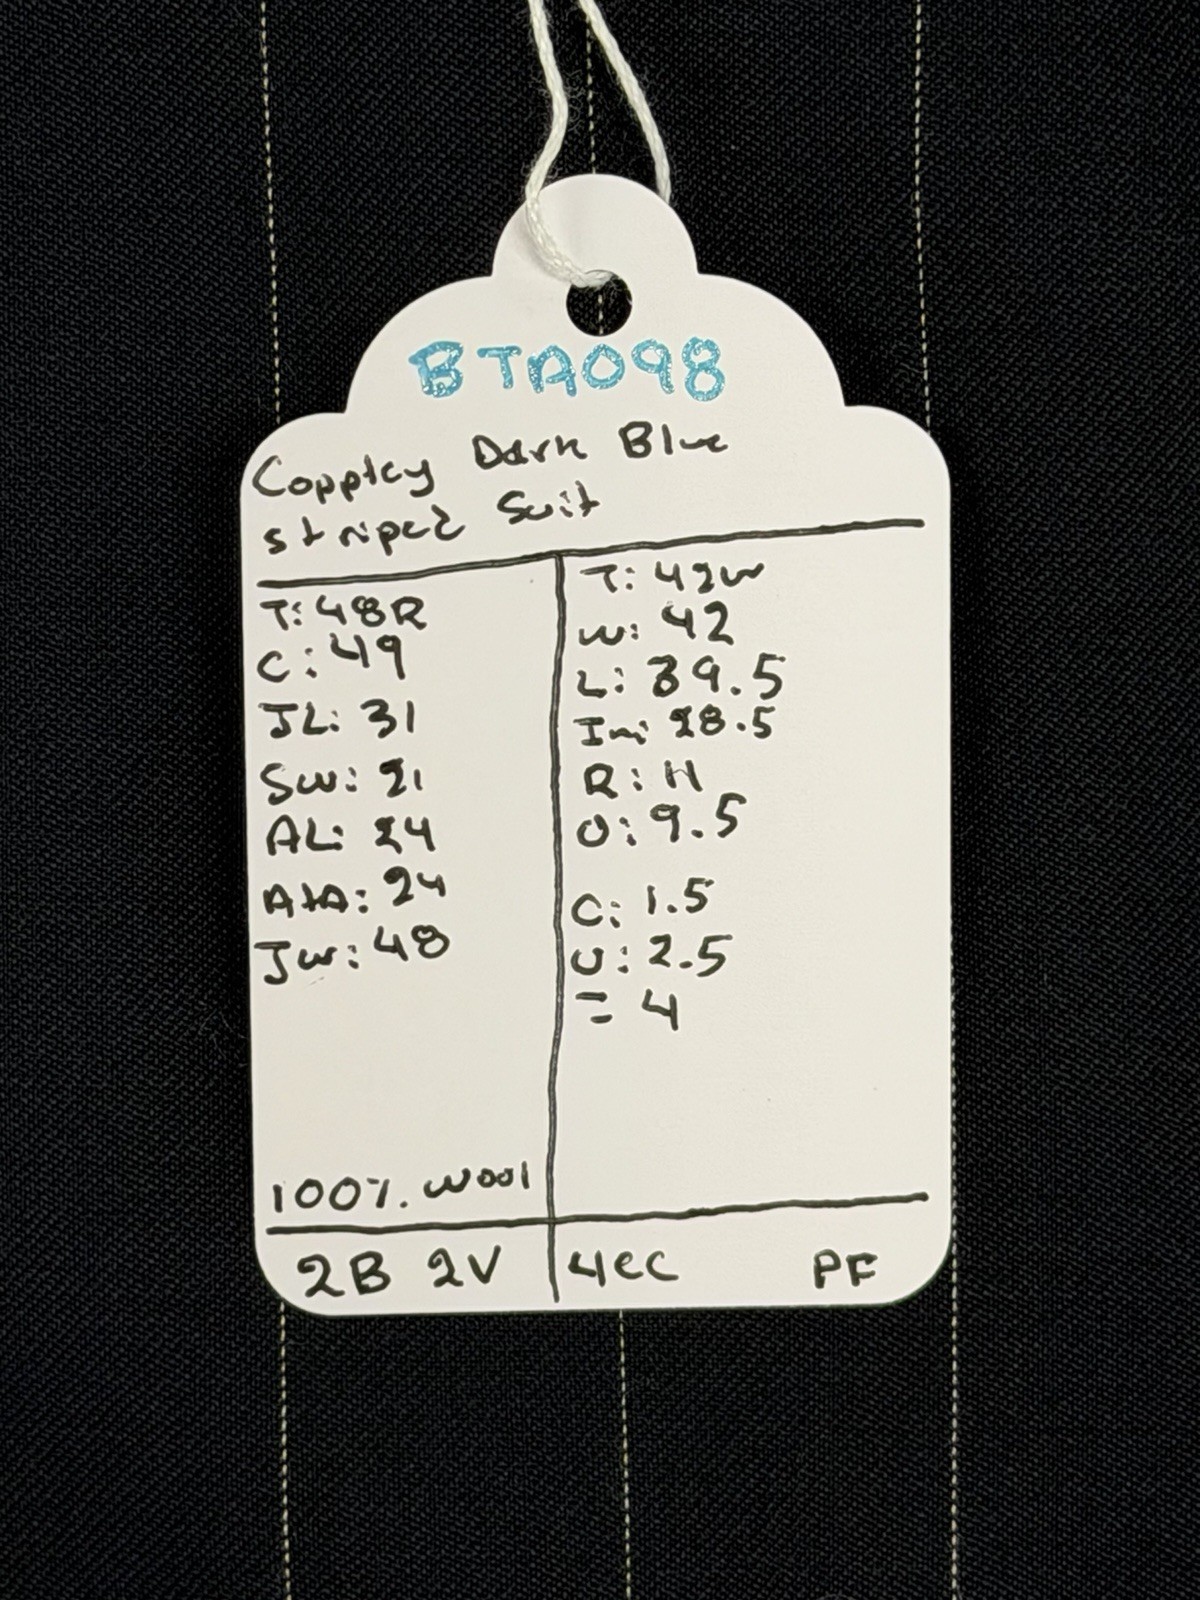 BTA098
Coppley Dark Blue
striped Suit
T: 48R
C: 49
JL: 31
SW: 21
AL: 24
AtA: 24
Jw: 48
100% wool
T: 42W
W: 42
L: 39.5
In: 28.5
R: 11
O: 9.5
C: 1.5
U: 2.5
= 4
2B 2V
4CC PF